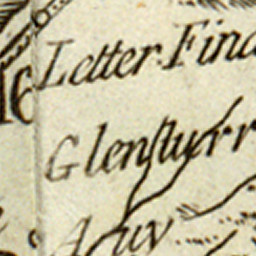 Letter Find
Glenſturr
Auv